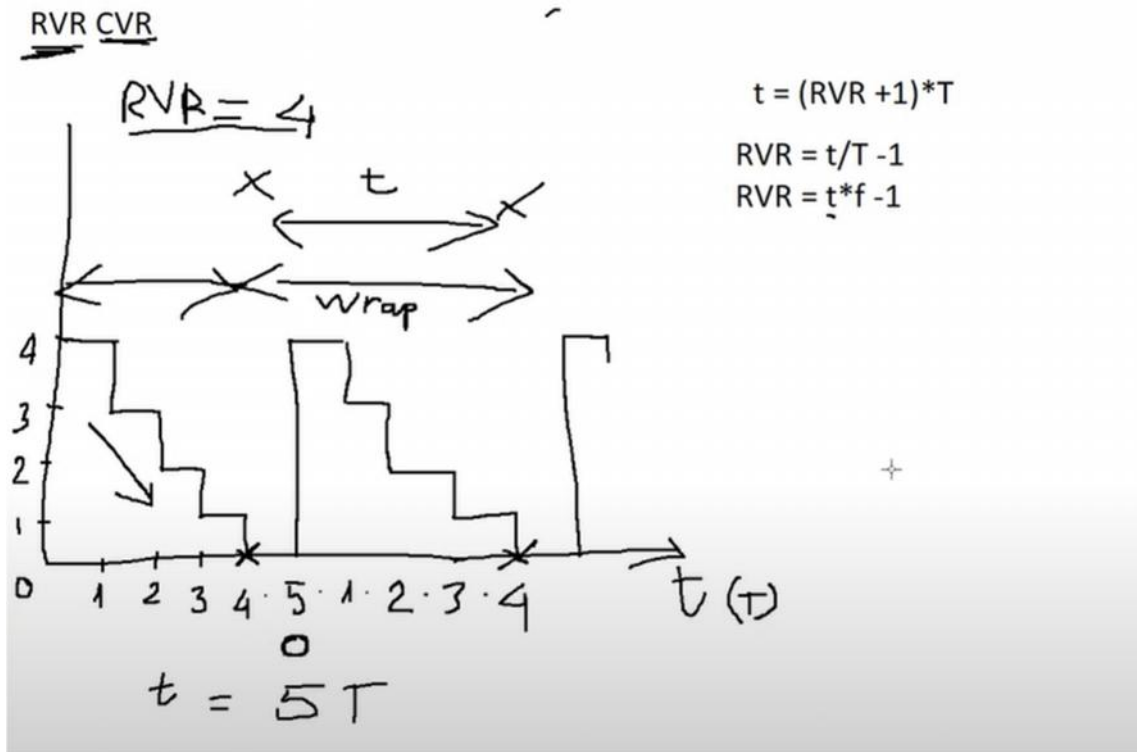 RVR CVR
RVR = 4
t = (RVR +1)*T
RVR = t/T -1
RVR = t*f -1
x t x
wrap
4
3
2
1
0 1 2 3 4 · 5 · 1 · 2 · 3 · 4 t (T)
0
t = 5T